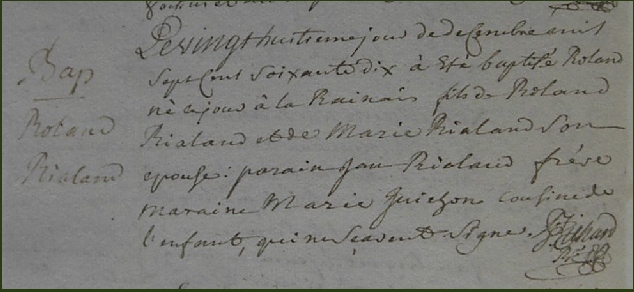 Bap
Roland
Rialand
Le vingt huitieme jour de decembre mil
sept cent soixante dix à eté baptisé Roland
né ce jour à la Rainais fils de Roland
Rialand et de Marie Rialand Son
epouse: parain Jan Rialand frére
maraine Marie Guichon cousine de
l'enfant, qui ne scavent signe.